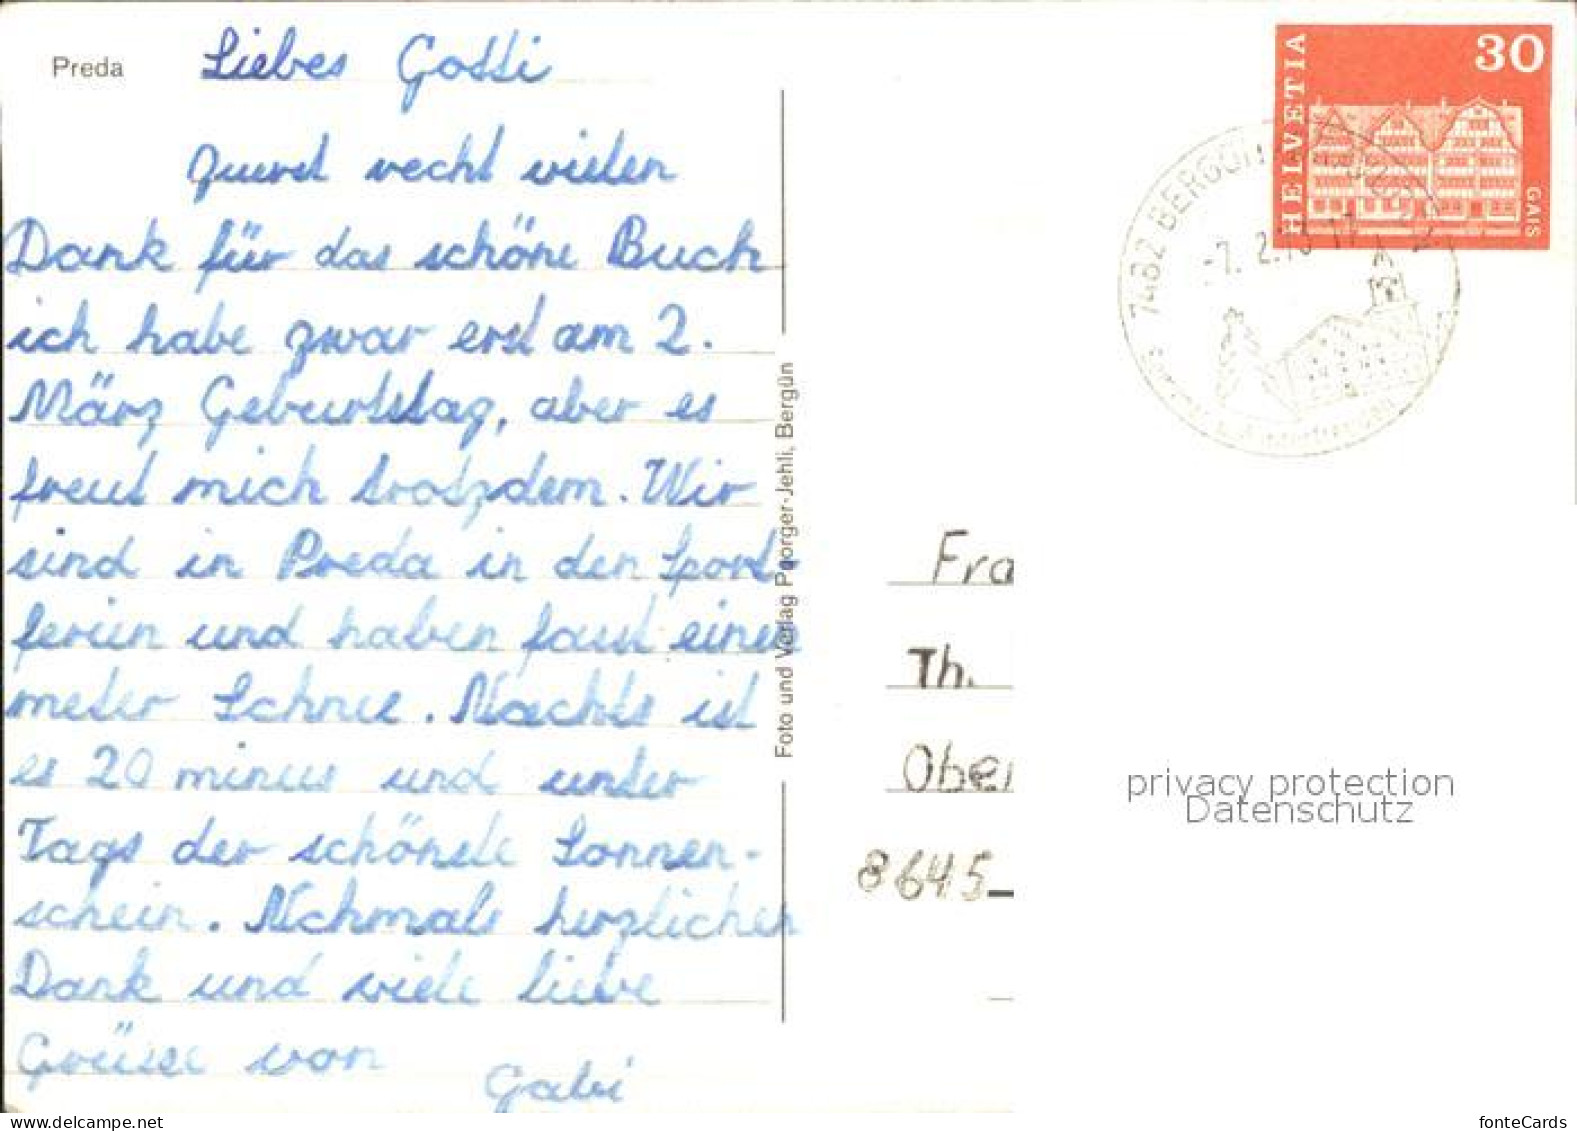 Preda
Liebes Gotti
zuerst recht vielen
Dank für das schöne Buch
ich habe zwar erst am 2.
März Geburtstag, aber es
freut mich trotzdem. Wir
sind in Preda in den Sport-
ferien und haben fast einen
meter Schnee. Nachts ist
es 20 minus und unter
Tags der schönste Sonnen-
schein. Nchmals herzlichen
Dank und viele liebe
Grüsse von
Gabi
Foto und Verlag Poorger-Jehli, Bergün
HELVETIA
30
GAIS
7482 BERGÜN
-7. 2.
Fra
Th.
Ober
8645
privacy protection
Datenschutz
fonteCards